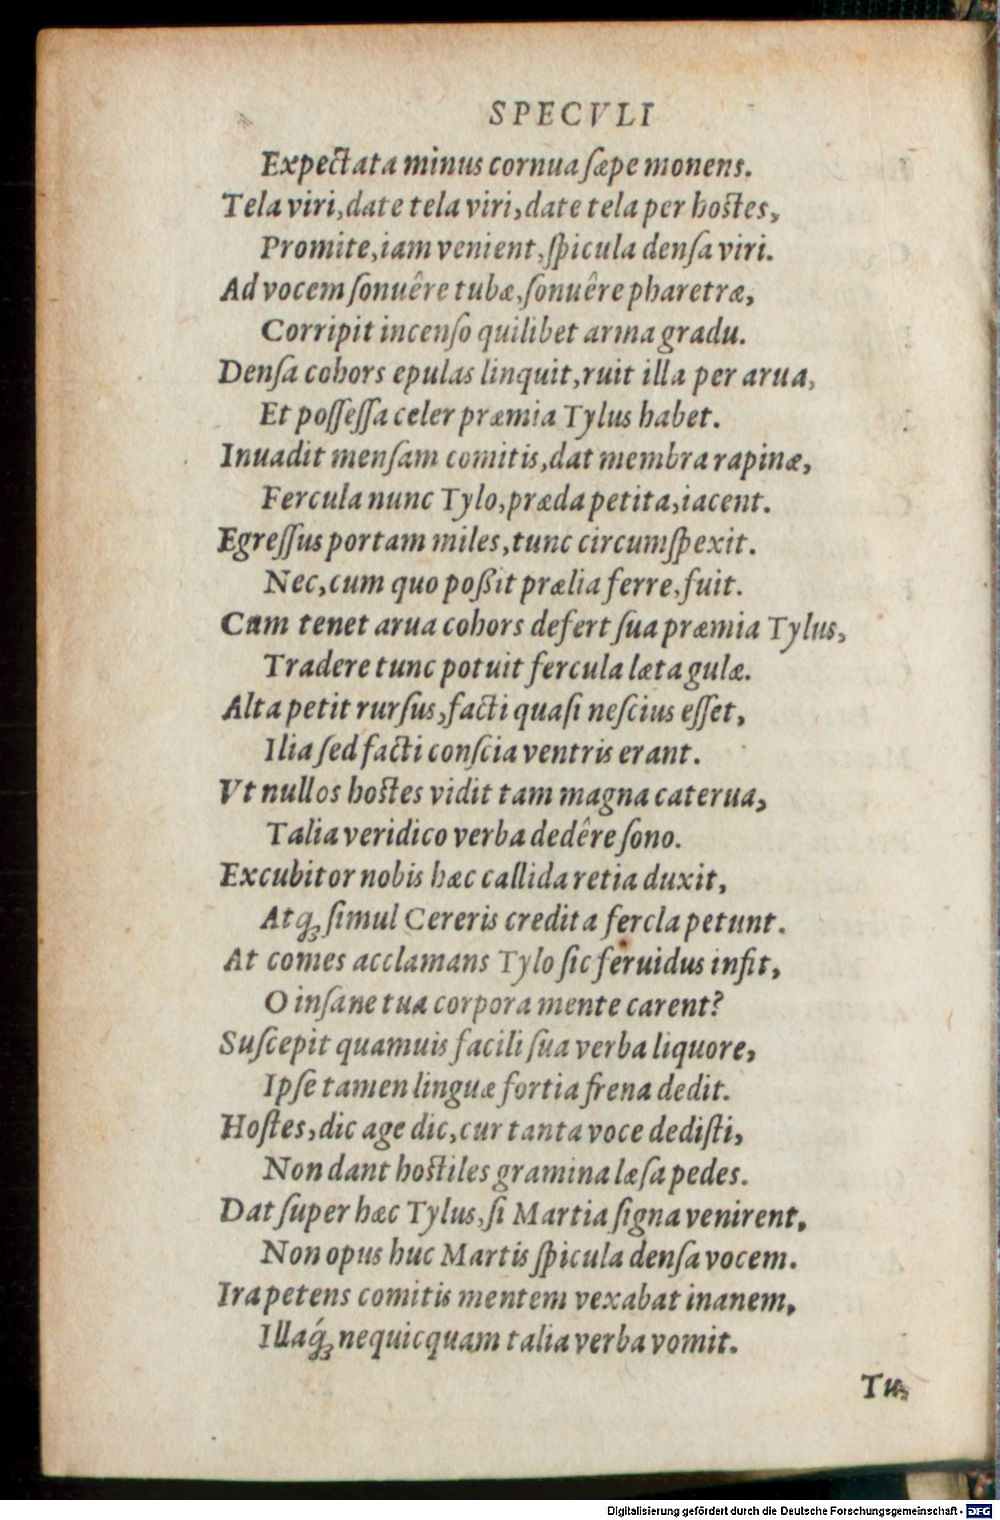 SPECVLI
Expectata minus cornua ſæpe monens.
Tela viri, date tela viri, date tela per hostes,
Promite, iam venient, ſpicula denſa viri.
Ad vocem ſonuêre tubæ, ſonuêre pharetræ,
Corripit incenſo quilibet arma gradu.
Denſa cohors epulas linquit, ruit illa per arua,
Et poſſeſſa celer præmia Tylus habet.
Inuadit menſam comitis, dat membra rapinæ,
Fercula nunc Tylo, præda petita, iacent.
Egreſſus portam miles, tunc circumſpexit.
Nec, cum quo poßit prælia ferre, fuit.
Cum tenet arua cohors defert ſua præmia Tylus,
Tradere tunc potuit fercula læta gulæ.
Alta petit rurſus, facti quaſi neſcius eſſet,
Ilia ſed facti conſcia ventris erant.
Vt nullos hostes vidit tam magna caterua,
Talia veridico verba dedêre ſono.
Excubitor nobis hæc callida retia duxit,
Atq́; ſimul Cereris credita fercla petunt.
At comes acclamans Tylo ſic feruidus infit,
O inſane tua corpora mente carent?
Suſcepit quamuis facili ſua verba liquore,
Ipſe tamen linguæ fortia frena dedit.
Hoſtes, dic age dic, cur tanta voce dediſti,
Non dant hostiles gramina læſa pedes.
Dat ſuper hæc Tylus, ſi Martia ſigna venirent,
Non opus huc Martis ſpicula denſa vocem.
Ira petens comitis mentem vexabat inanem,
Illaq́; nequicquam talia verba vomit.
Tu,
Digitalisierung gefördert durch die Deutsche Forschungsgemeinschaft - DFG